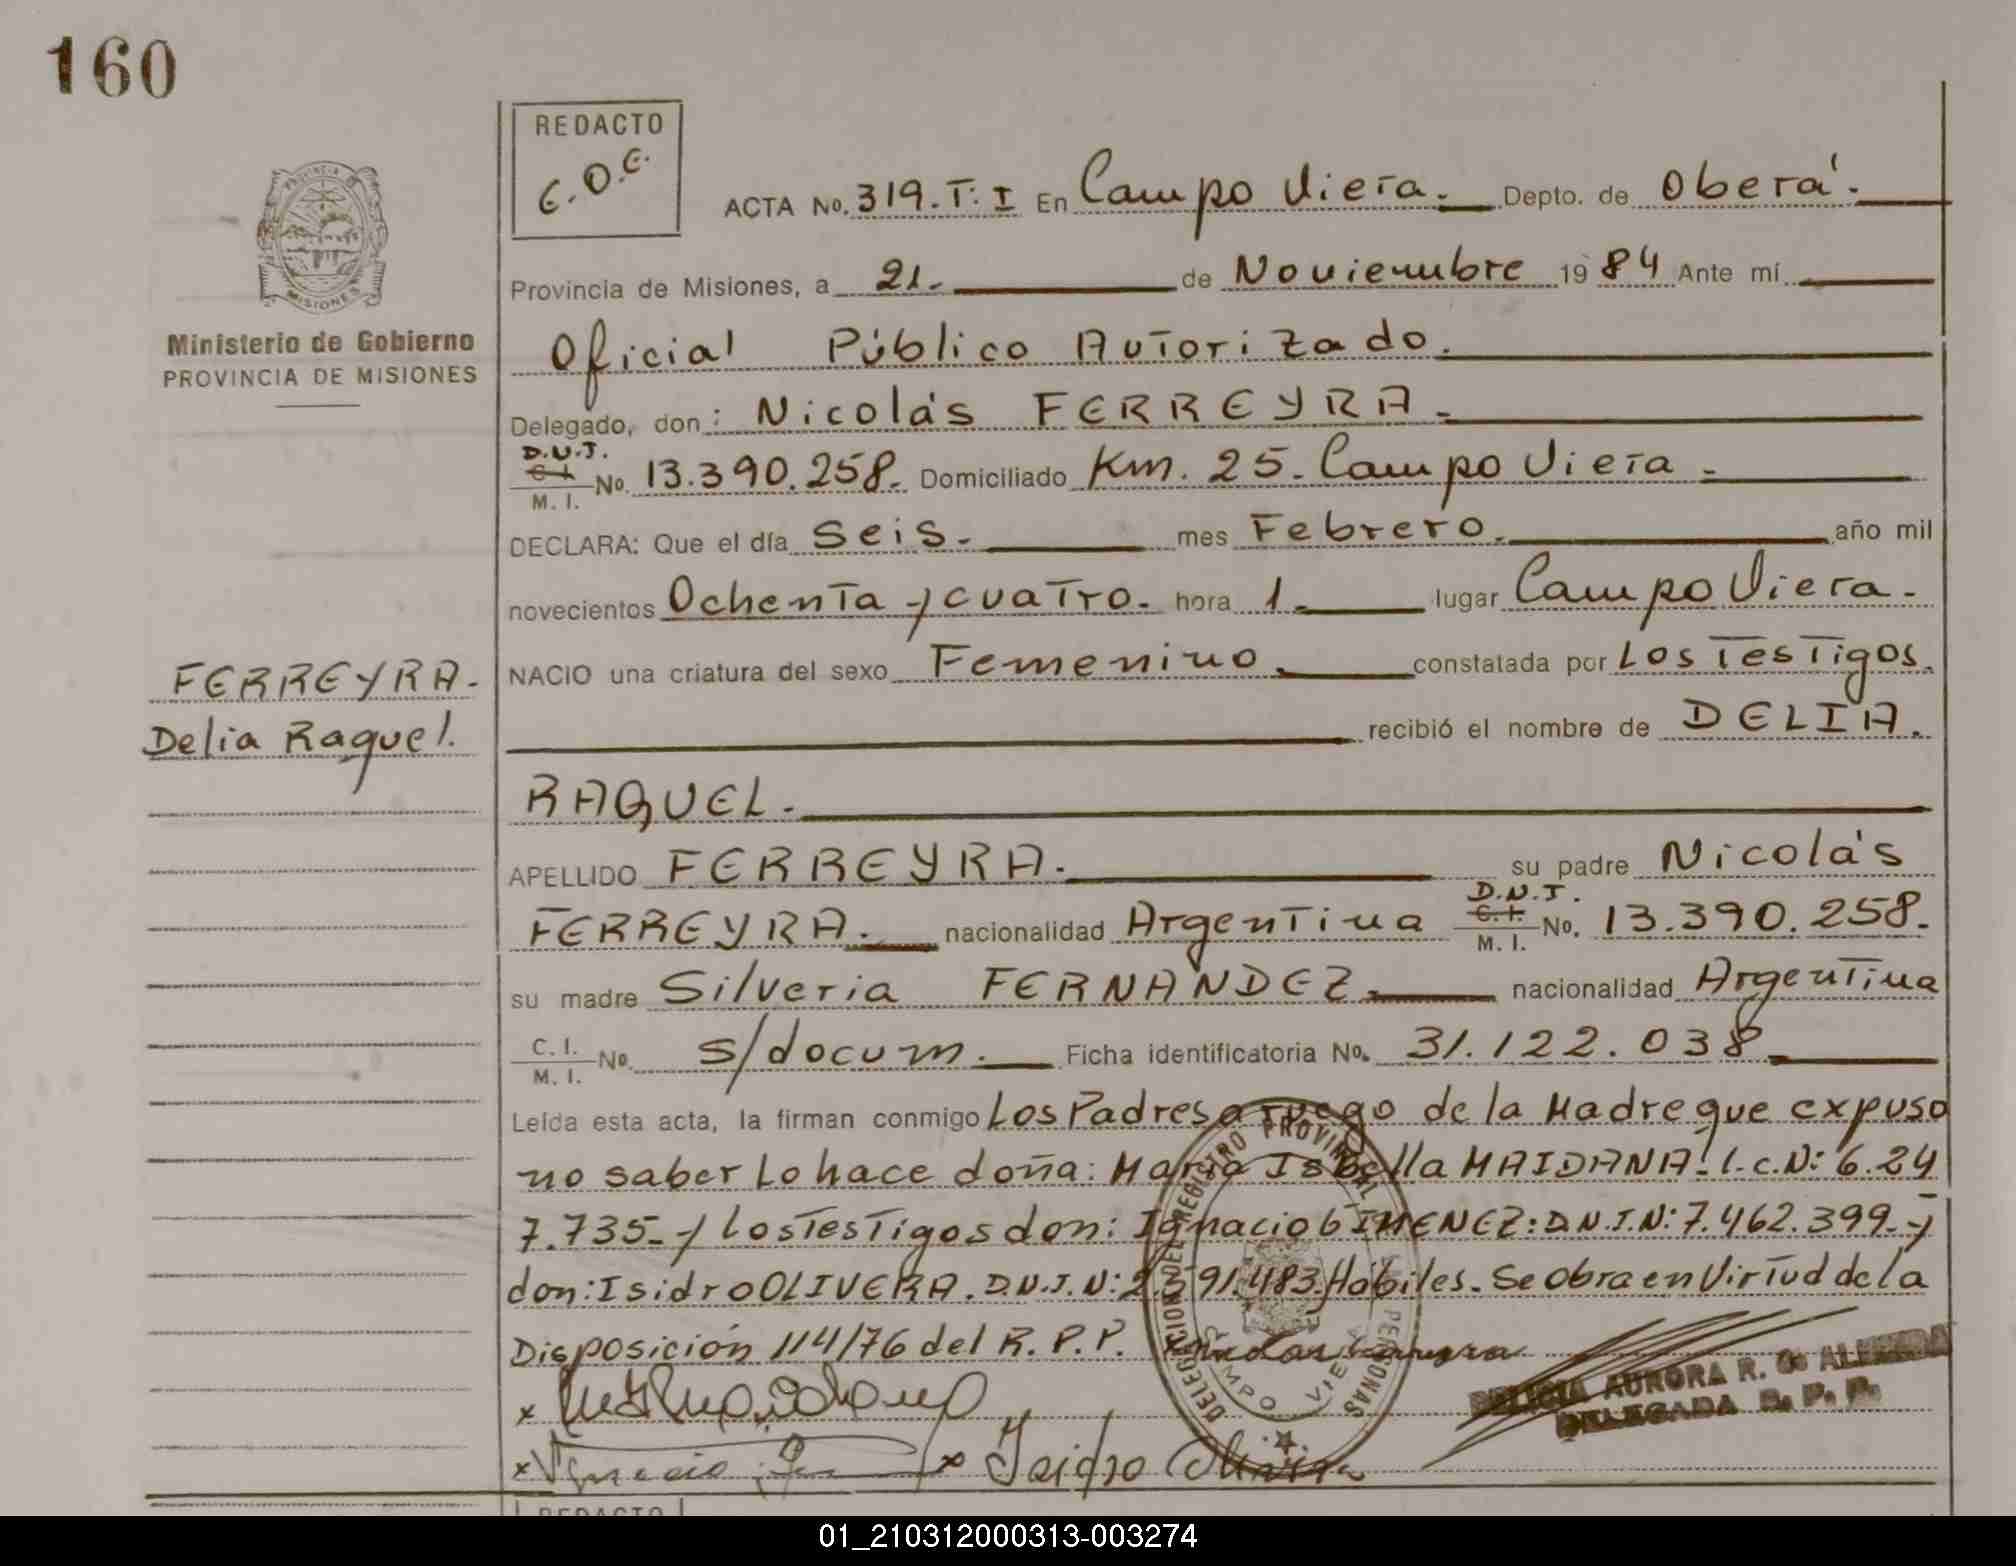 160
REDACTO
E.O.E.
ACTA No. 319.T: I En Campo Viera. Depto. de Oberá.
PROVINCIA DE
MISIONES
Provincia de Misiones, a 21. de Noviembre 1984 Ante mí
Ministerio de Gobierno
PROVINCIA DE MISIONES
Oficial Público Autorizado.
Delegado, don: Nicolás FERREYRA.
D.N.I.
C.I.
M. I. No. 13.390.258. Domiciliado Km. 25. Campo Viera.
DECLARA: Que el día seis. mes Febrero. año mil
novecientos Ochenta y cuatro. hora 1. lugar Campo Viera.
NACIO una criatura del sexo Femenino. constatada por Los Testigos.
FERREYRA.
Delia Raquel.
recibió el nombre de DELIA.
RAQUEL.
APELLIDO FERREYRA. su padre Nicolás
D.N.I.
FERREYRA. nacionalidad Argentina C.I. M. I. No. 13.390.258.
su madre Silveria FERNANDEZ. nacionalidad Argentina
C. I. M. I. No. s/docum. Ficha identificatoria No. 31.122.038
Leída esta acta, la firman conmigo Los Padres a ruego de la Madre que expuso
no saber Lo hace doña: María Isabella MAIDANA: L.C.N: 6.24
7.735. y los Testigos don: Ignacio GIMENEZ: D.N.I.N: 7.462.399. y
don: Isidro OLIVERA. D.N.I.N: 2. 91.483 Hábiles. Se obra en Virtud de la
Disposición 114/76 del R.P.P.
DELEGACION DEL REGISTRO PROVINCIAL PERSONAS
CAMPO VIERA
DELICIA AURORA R. G. ALMEIDA
DELEGADA R. P. P.
x
x Ignacio x Isidro Olivera
REDACTO
01_210312000313-003274